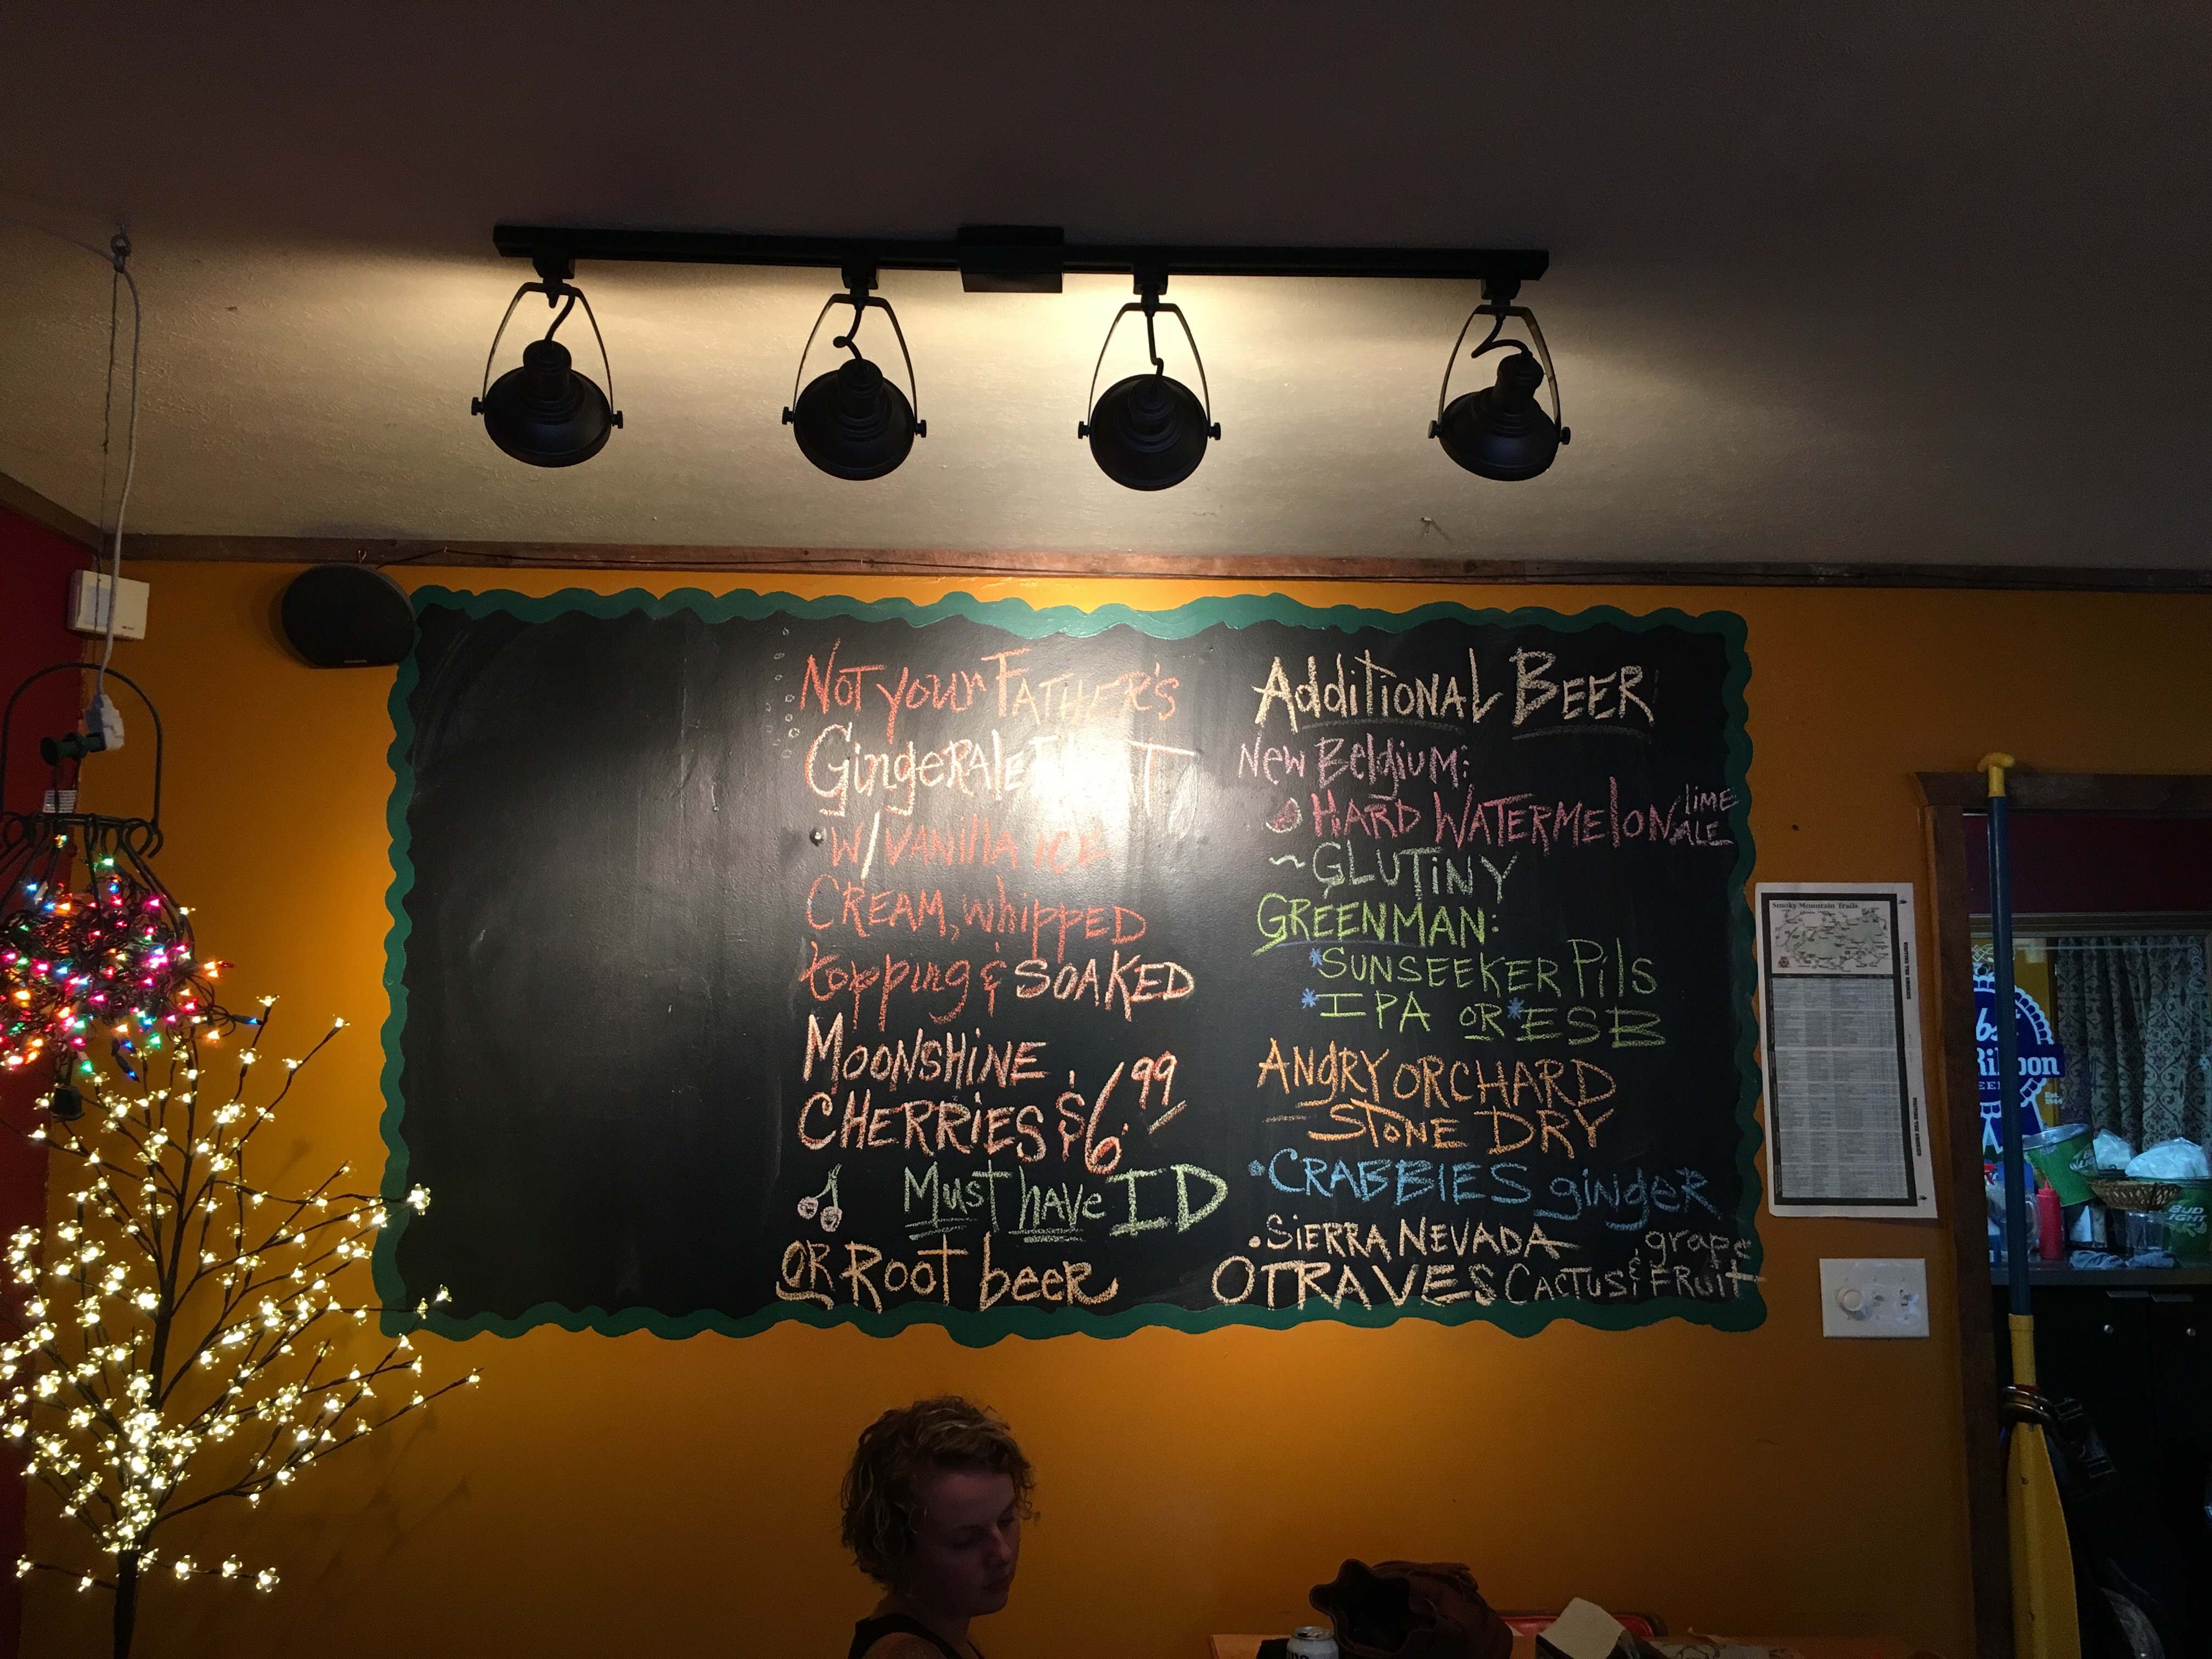 Not your Father's
Gingerale
w/ Vanilla ice
Cream, whipped
topping & SOAKED
Moonshine
Cherries $6.99
Must have ID
OR Root beer
Additional Beer
New Belgium:
Hard Watermelon lime ALE
~ GLUTiNY
GREENMAN:
*SUNSEEKER Pils
*IPA OR *ESB
ANGRY ORCHARD
STONE DRY
•CRABBIES ginger
•Sierra Nevada
OTRA VES Cactus & grape FRuit
Smoky Mountain Trails
Ribbon
BUD